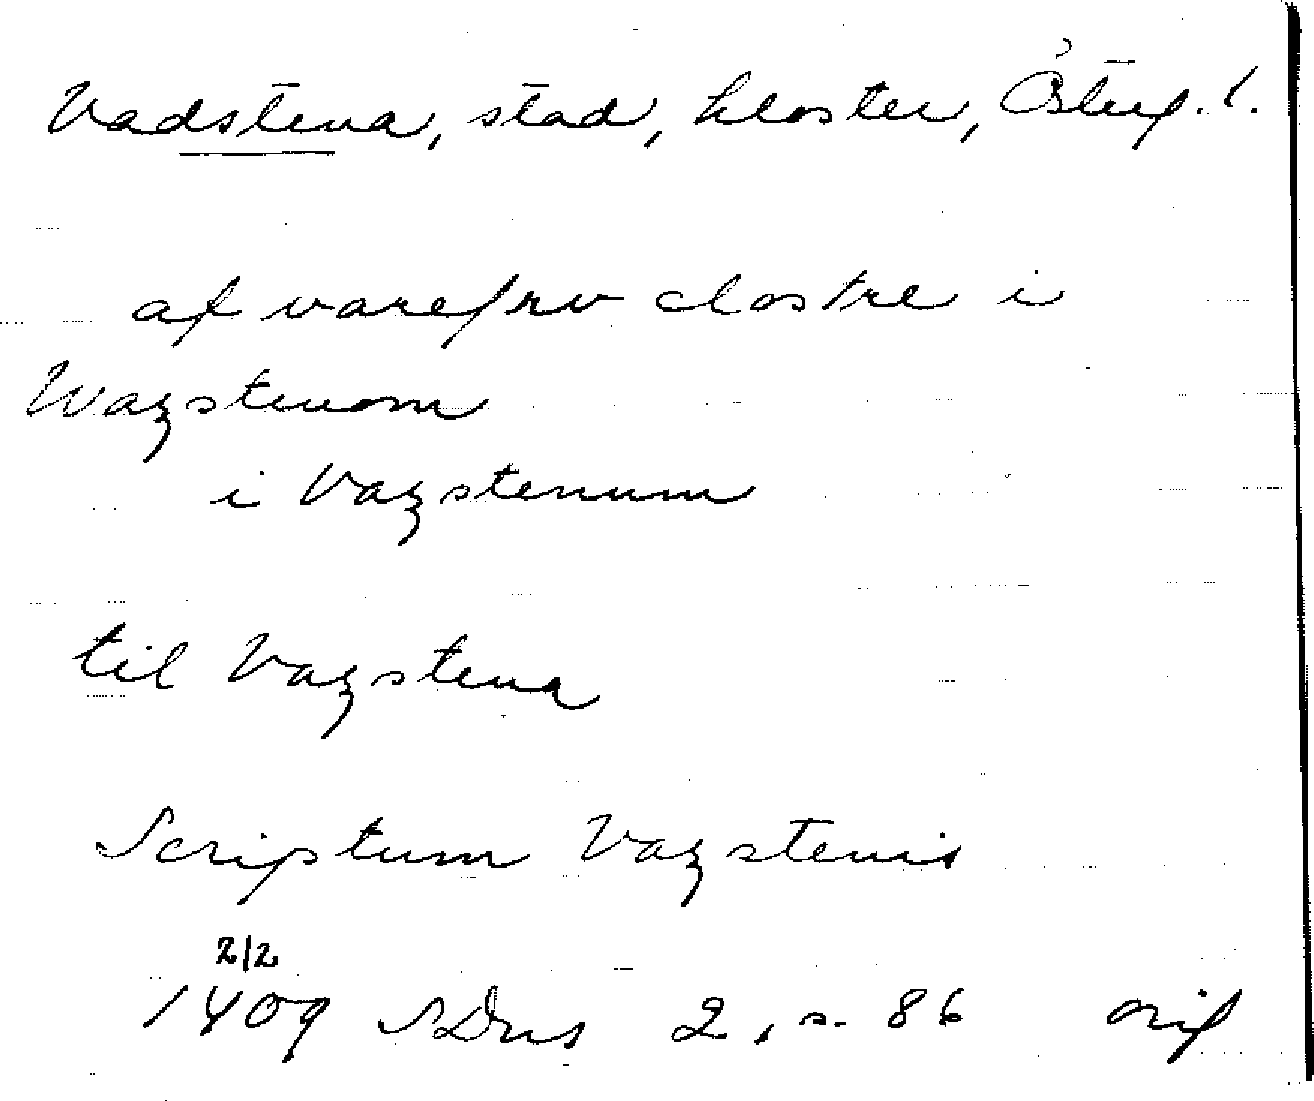 Vadstena, stad, kloster, Österg. l.
af varefrv clostre i
Wazstenom
i Vazstenum
til Vazstena
Scriptum Vazstenis
2/2
1409 SDns 2, s. 86 orig